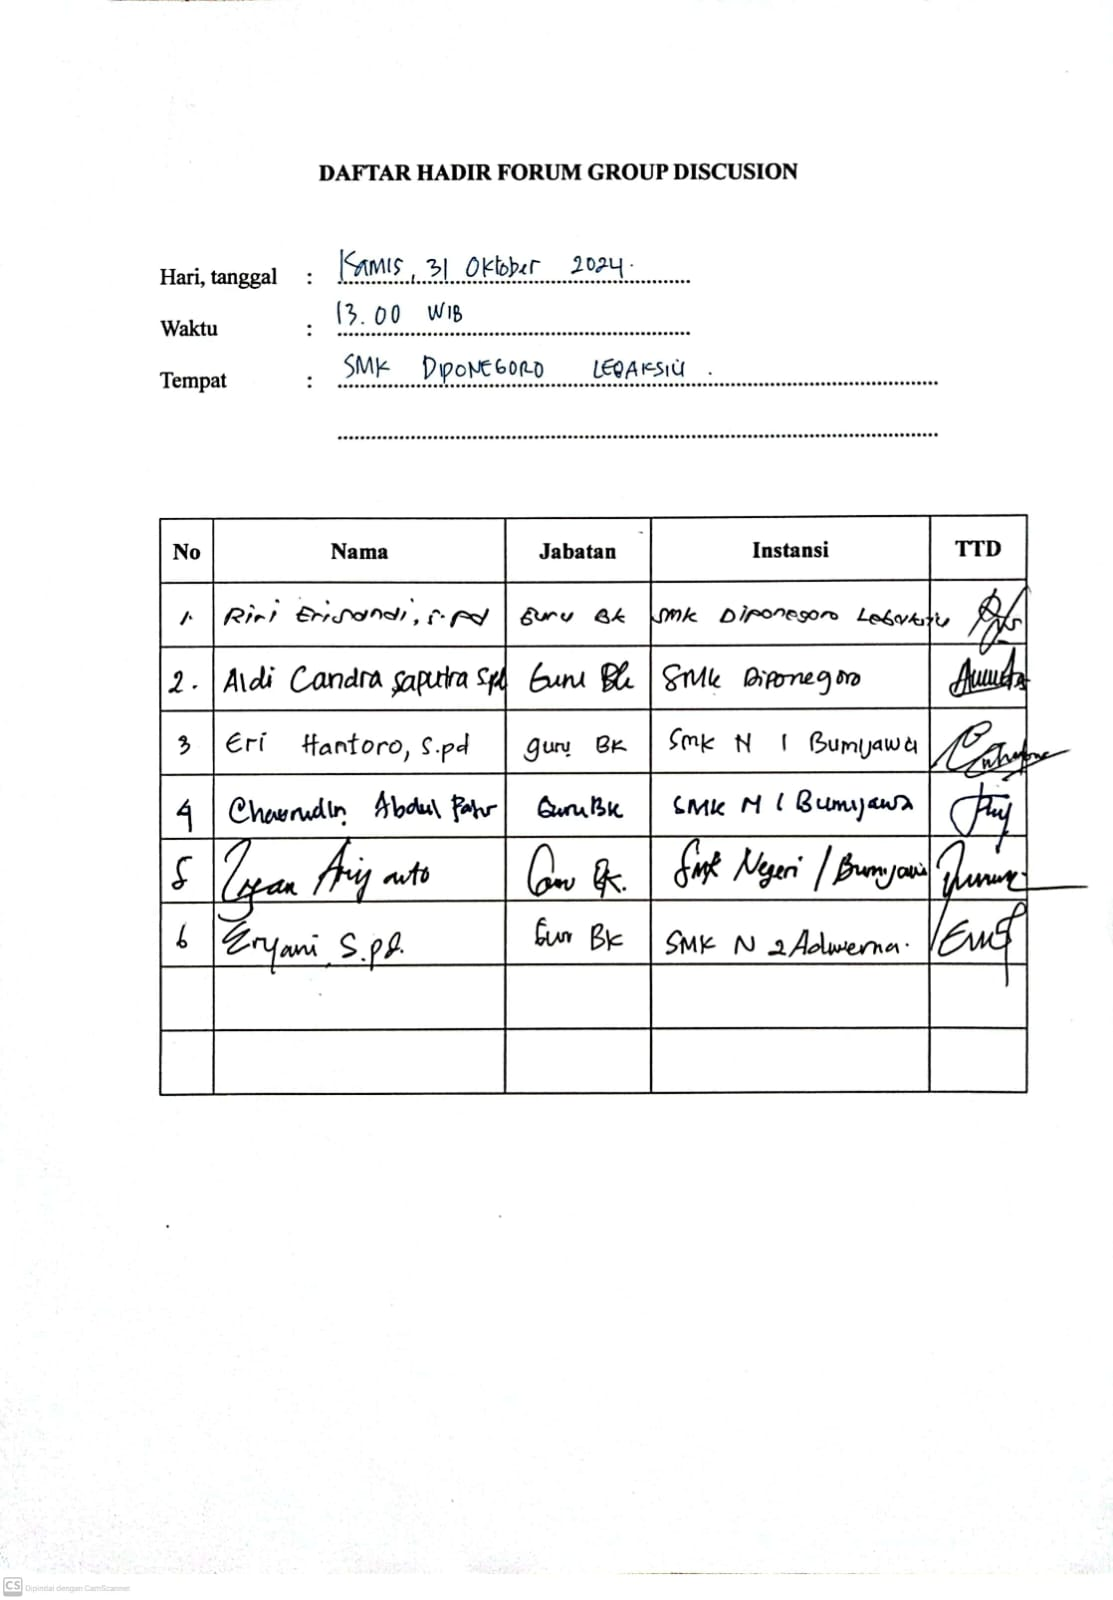 DAFTAR HADIR FORUM GROUP DISCUSION
Hari, tanggal : Kamis, 31 Oktober 2024.
Waktu : 13.00 WIB
Tempat : SMK DIPONEGORO LEBAKSIU .
No Nama Jabatan Instansi TTD
1. Riri Erisandi, S.pd Guru BK SMK Diponegoro Lebaksiu
2. Aldi Candra Saputra Spd Guru Bk SMK Diponegoro
3 Eri Hantoro, S.pd guru BK Smk N 1 Bumijawa
4 Abdul Guru BK SMK N 1 Bumijawa
5 Ariyanto Guru BK. Smk Negeri 1 Bumijawa
6 Eryani, S.pd. Guru BK SMK N 2 Adiwerna.
CS Dipindai dengan CamScanner